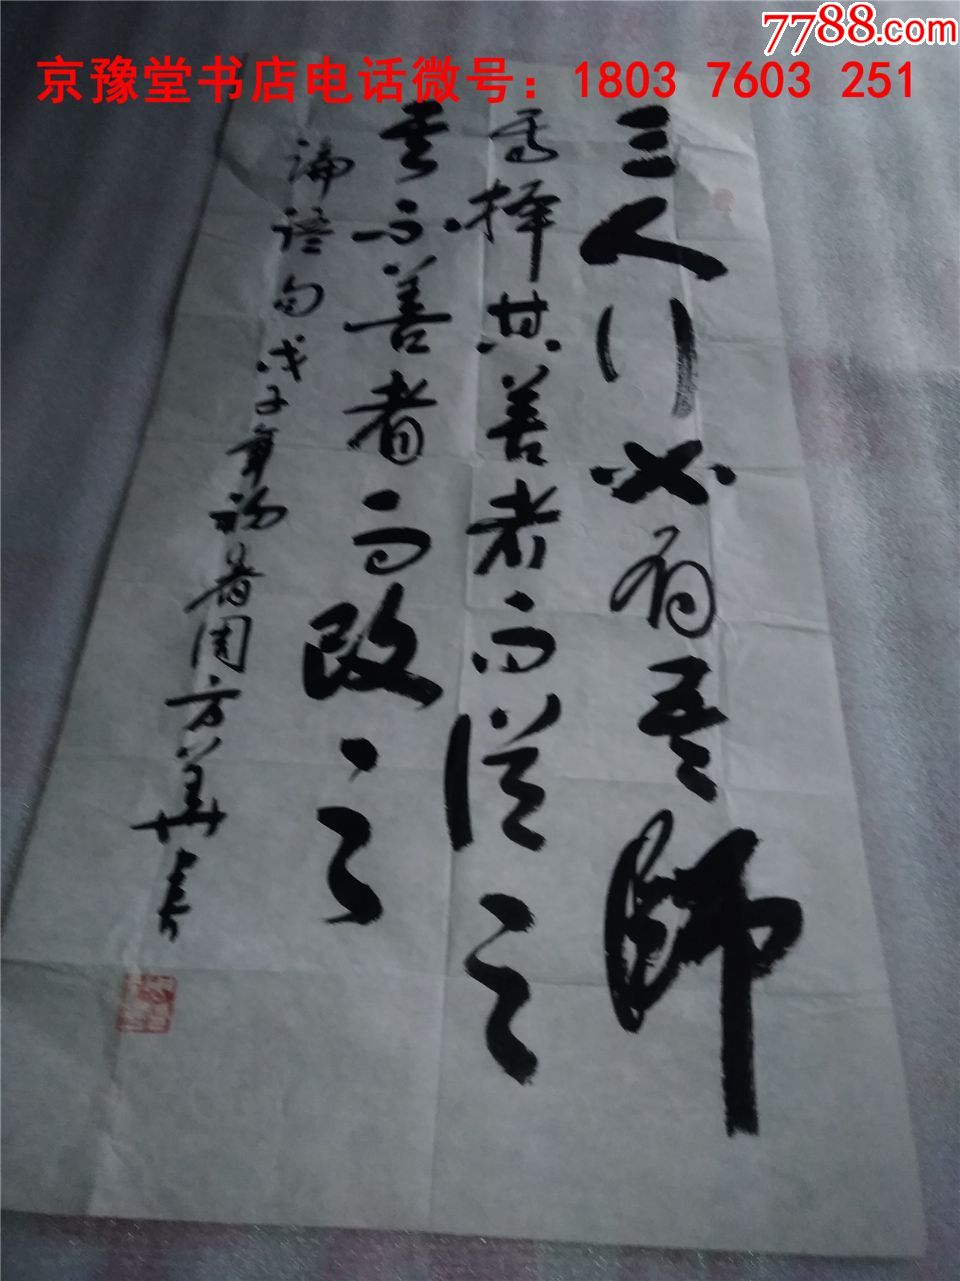 7788.com
京豫堂书店电话微号：1803 7603 251
三人行必有吾師
焉择其善者而从之
其不善者而改之
论语句戊子年初春周方华书